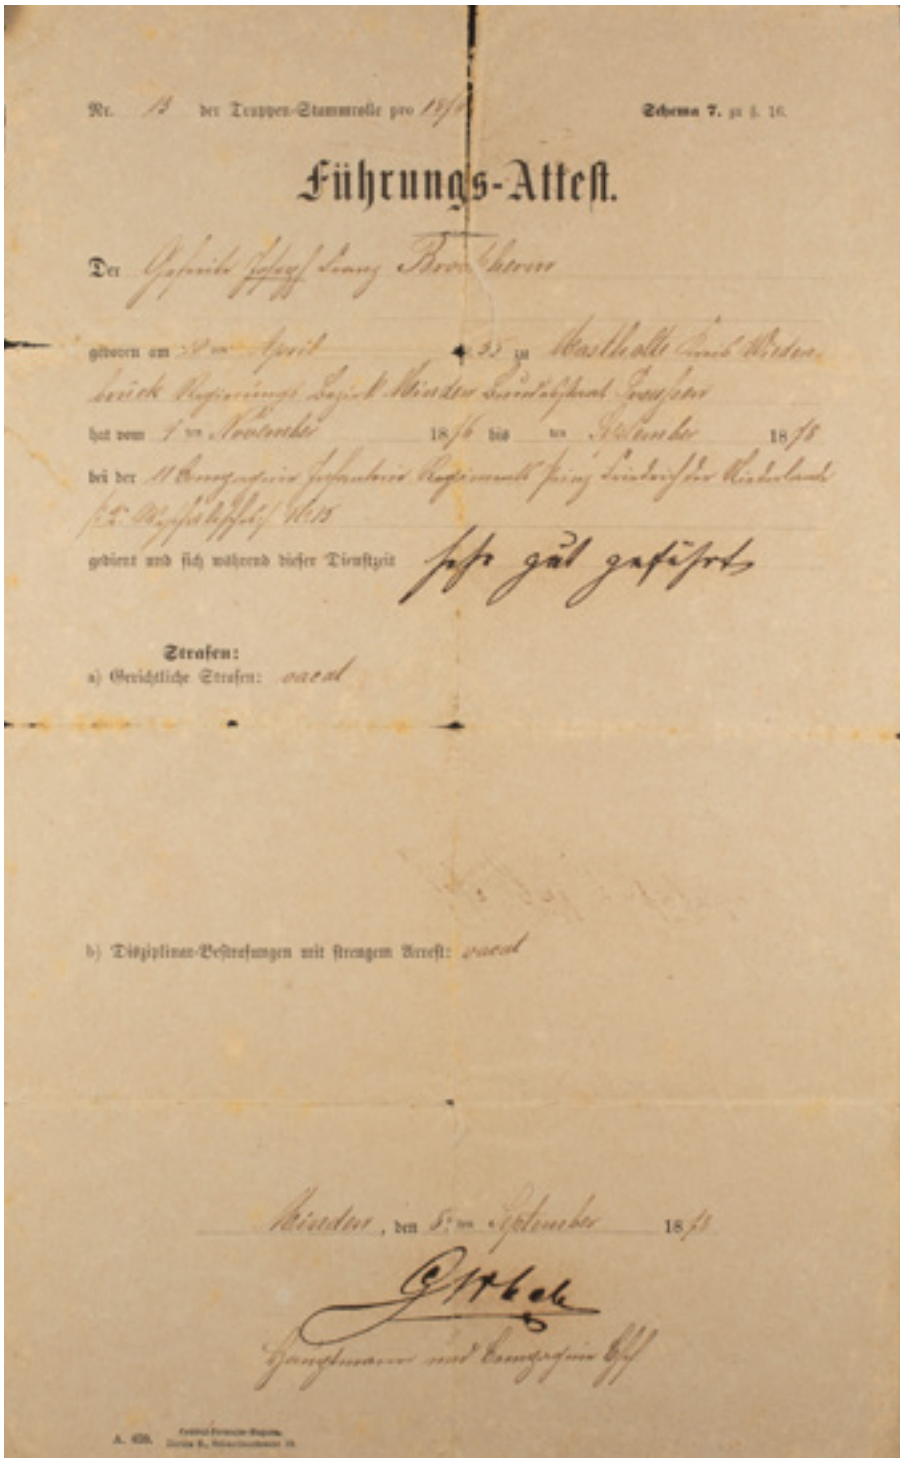 Nr. 13 der Truppen-Stammrolle pro 187 Schema 7. zu §. 16.
Führungs-Attest.
Der Gefreite Joseph Franz
geboren am ten April 55 zu Mastholte Kreis Wieden-
brück Regierungs Bezirk Minden Bundesstaat Preußen
hat vom 1 ten November 1876 bis ten September 1878
bei der 11 Compagnie Infanterie Regiments Prinz Friedrich der Niederlande
No 15
gedient und sich während dieser Dienstzeit sehr gut geführt
Strafen:
a) Gerichtliche Strafen: vacat
b) Disziplinar-Bestrafungen mit strengem Arrest: vacat
Minden, den 8. ten September 1878
Hauptmann und Compagnie Chef
A.